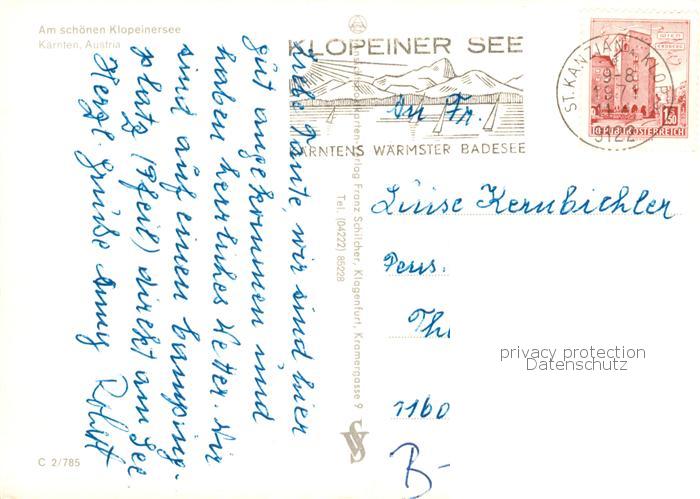 Am schönen Klopeinersee
Kärnten, Austria
Liebe Tante, wir sind hier
gut angekommen und
haben herrliches Wetter. Wir
sind auf einen Camping-
platz (Pfeil) direkt am See
Herzl. Grüße Anny Robert
C 2/785
Verlag Franz Schilcher, Klagenfurt, Kramergasse 9
Tel. (04222) 85228
KLOPEINER SEE
KÄRNTENS WÄRMSTER BADESEE
ST. KANZIAN KLOP
9-8
1971
9122
REPUBLIK ÖSTERREICH
1.50
An Fr.
Luise Kernbichler
Pens.
Th
1160
B-
privacy protection
Datenschutz